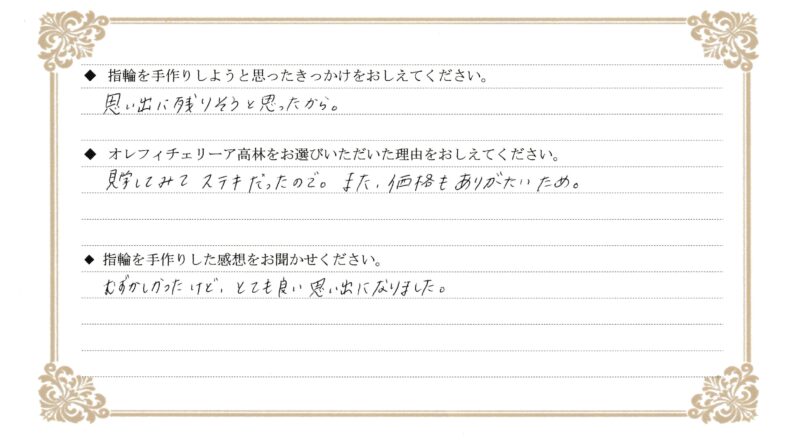 ◆ 指輪を手作りしようと思ったきっかけをおしえてください。
思い出に残りそうと思ったから。
◆ オレフィチェリーア高林をお選びいただいた理由をおしえてください。
見学してみて ステキだったので。また、価格もありがたいため。
◆ 指輪を手作りした感想をお聞かせください。
むずかしかったけど、とても良い思い出になりました。